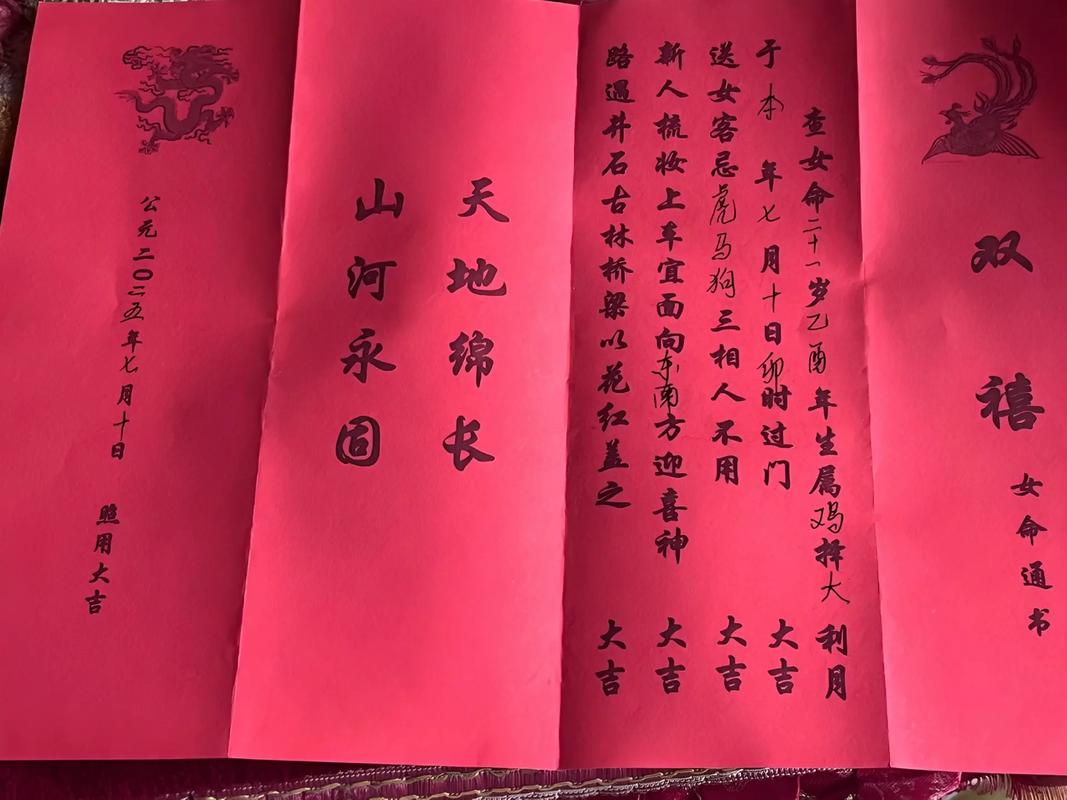 双禧
女命通书
查女命二十一岁乙酉年生属鸡择大利月
于本年七月十日卯时过门 大吉
送女客忌虎马狗三相人不用 大吉
新人梳妆上车宜面向东南方迎喜神 大吉
路遇井石古林桥梁以花红盖之 大吉
天地绵长
山河永固
公元二0二五年七月十日
照用大吉